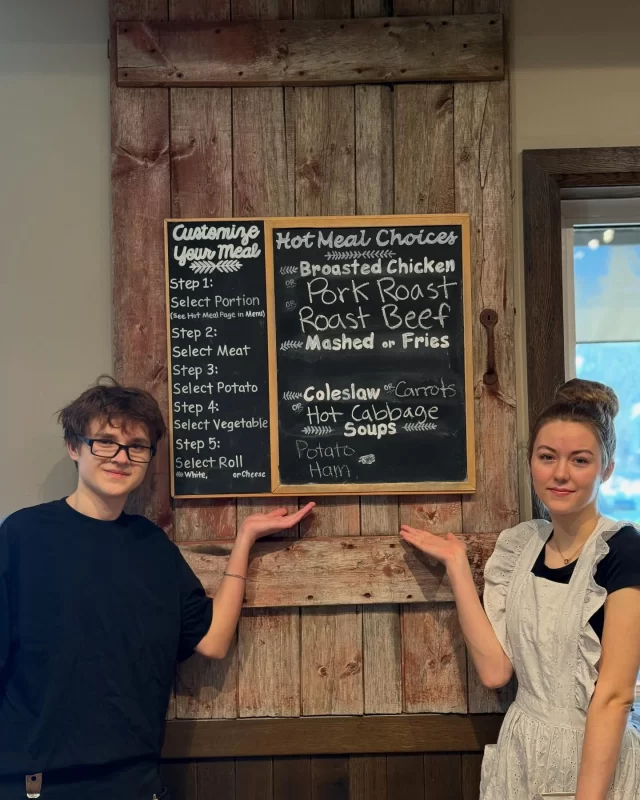 Customize
Your Meal
Step 1:
Select Portion
(See Hot Meal Page in Menu)
Step 2:
Select Meat
Step 3:
Select Potato
Step 4:
Select Vegetable
Step 5:
Select Roll
White, or Cheese
Hot Meal Choices
Broasted Chicken
or Pork Roast
or Roast Beef
Mashed or Fries
Coleslaw or Carrots
or Hot Cabbage
Soups
Potato
Ham